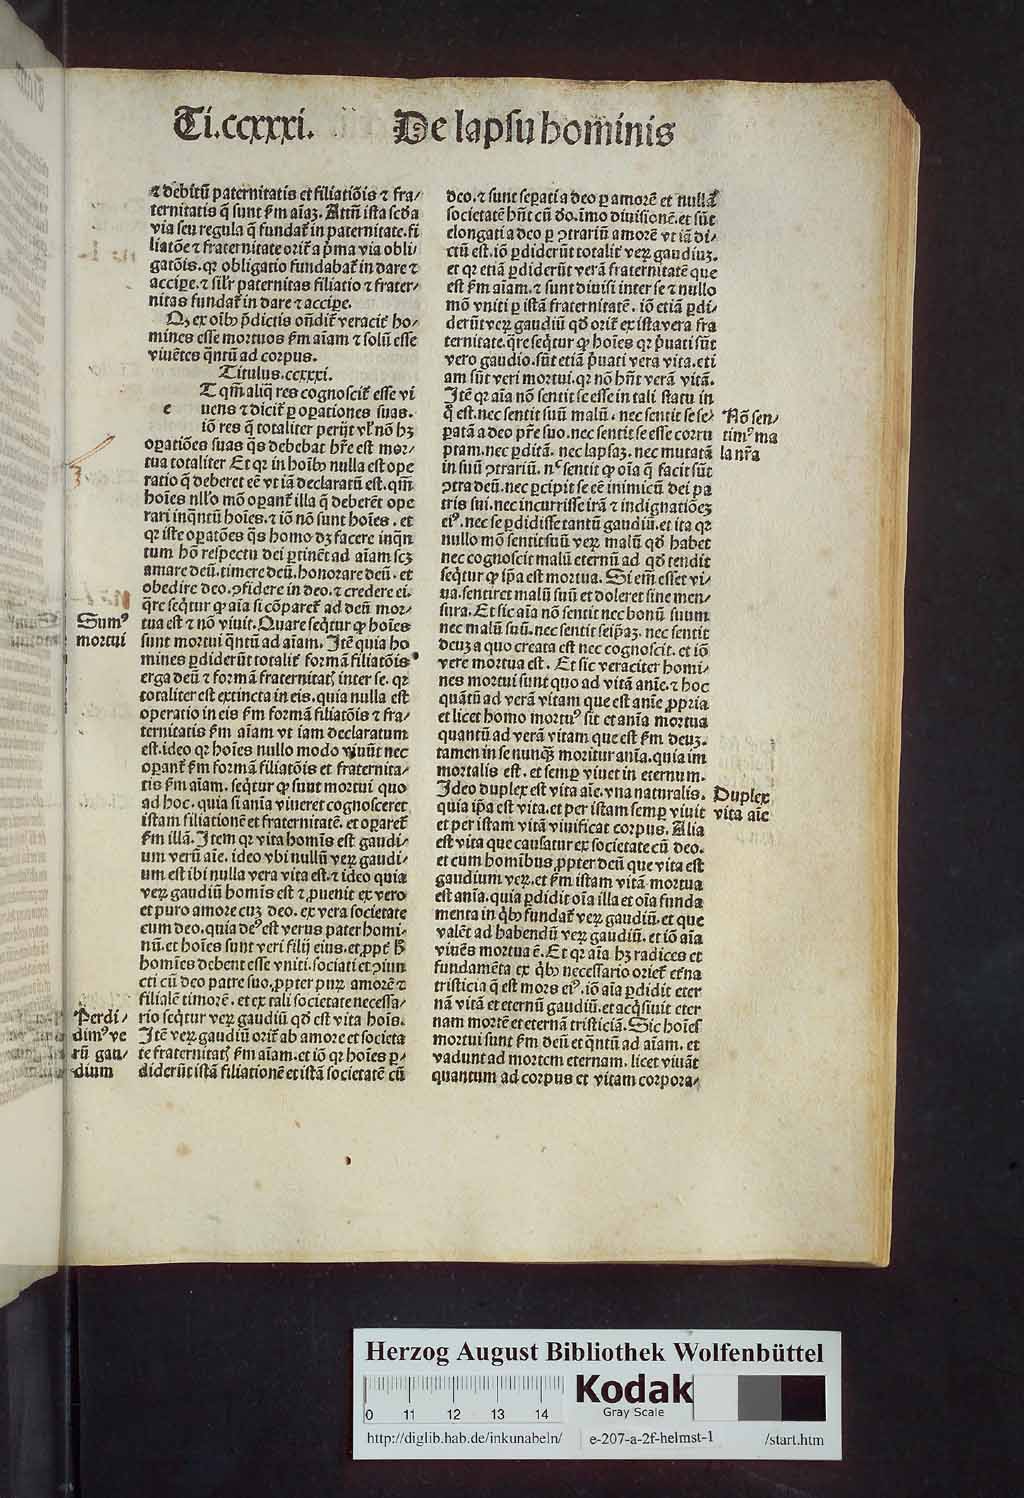 Ti.ccxxxi. De lapsu hominis
⁊ debitū paternitatis et filiatiōis ⁊ fra/
ternitatis q̄ sunt ſm aīaꝫ. Attñ ista scd̄a
via seu regula q̄ fundat̄ in paternitate. fi
liatōe ⁊ fraternitate orit̄ a p̄ma via obli/
gatōis. qꝛ obligatio fundabat̄ in dare ⁊
accipe. ⁊ silr̄ paternitas filiatio ⁊ frater/
nitas fundat̄ in dare ⁊ accipe.
Qꝫ ex oībꝫ p̄dictis oñdit̄ veracit̄ ho/
mines esse mortuos ſm aīam ⁊ solū esse
viuētes q̄ntū ad corpus.
Titulus.ccxxxi.
e T qm̄ aliq̄ res cognoscit̄ esse vi
uens ⁊ dicit̄ ꝑ oꝑationes suas.
iō res q̄ totaliter perijt vl̄ nō hꝫ
oꝑatiōes suas q̄s debebat hr̄e est mor/
tua totaliter Et qꝛ in hoībꝫ nulla est ope
ratio q̄ deberet eē vt iā declaratū est. qm̄
hoīes nll̓o mō oꝑant̄ illa q̄ deberēt ope
rari inq̄ntū hoīes. ⁊ iō nō sunt hoīes. et
qꝛ iste oꝑatōes q̄s homo dꝫ facere inq̄n
tum hō respectu dei ꝑtinēt ad aīam scꝫ
amare deū. timere deū. honorare deū. et
obedire deo. ꝯfidere in deo. ⁊ credere ei.
q̄re seq̄tur ꝙ aīa si cōparet̄ ad deū mor/
tua est ⁊ nō viuit. Quare seq̄tur ꝙ hoīes
sunt mortui q̄ntū ad aīam. Itē quia ho
mines ꝑdiderūt totalit̄ formā filiatōis
erga deū ⁊ formā fraternitat̄ inter se. qꝛ
totaliter est extincta in eis. quia nulla est
operatio in eis ſm formā filiatōis ⁊ fra/
ternitatis ſm aīam vt iam declaratum
est. ideo qꝛ hoīes nullo modo viuūt nec
oꝑant̄ ſm formā filiatōis et fraternita/
tis ſm aīam. seq̄tur ꝙ sunt mortui quo
ad hoc. quia si anīa viueret cognosceret
istam filiationē et fraternitatē. et oꝑaret̄
ſm illā. Item qꝛ vita homīs est gaudi/
um verū aīe. ideo vbi nullū veꝝ gaudi/
um est ibi nulla vera vita est. ⁊ ideo quia
veꝝ gaudiū homīs est ⁊ ꝓuenit ex vero
et puro amore cuꝫ deo. ex vera societate
cum deo. quia deꝰ est verus pater homi/
nū. et hoīes sunt veri filij eius. et ꝓpt̄ h̄
homīes debent esse vniti. sociati et ꝯiun
cti cū deo patre suo. ꝓpter puꝝ amorē ⁊
filialē timorē. et ex tali societate necessa/
rio seq̄tur veꝝ gaudiū qd̄ est vita hoīs.
Itē veꝝ gaudiū orit̄ ab amore et societa
te fraternitat̄ ſm aīam. et iō qꝛ hoīes ꝑ/
diderūt istā filiationē et istā societatē cū
Sumꝰ
mortui
Perdi/
dimꝰ ve
rū gau/
dium
deo. ⁊ sunt seꝑati a deo ꝑ amorē et nullā
societatē hñt cū d̄o. īmo diuisionē. et sūt
elongati a deo ꝑ ꝯtrariū amorē vt iā di/
ctū est. iō ꝑdiderūt totalit̄ veꝝ gaudiuꝫ.
et qꝛ etiā ꝑdiderūt verā fraternitatē que
est ſm aīam. ⁊ sunt diuisi inter se ⁊ nullo
mō vniti ꝑ istā fraternitatē. iō etiā ꝑdi/
derūt veꝝ gaudiū qd̄ orit̄ ex ista vera fra
ternitate. q̄re seq̄tur ꝙ hoīes qꝛ p̄uati sūt
vero gaudio. sūt etiā p̄uati vera vita. eti
am sūt veri mortui. qꝛ nō hñt verā vitā.
Itē qꝛ aīa nō sentit se esse in tali statu in
q̄ est. nec sentit suū malū. nec sentit se se/
ꝑatā a deo pr̄e suo. nec sentit se esse corru
ptam. nec ꝑditā. nec lapsaꝫ. nec mutatā
in suū ꝯtrariū. nͨ sentit ꝙ oīa q̄ facit sūt
ꝯtra deū. nec ꝑcipit se eē inimicū dei pa
tris sui. nec incurrisse irā ⁊ indignatiōeꝫ
eiꝰ. nec se ꝑdidisse tantū gaudiū. et ita qꝛ
nullo mō sentit suū veꝝ malū qd̄ habet
nec cognoscit malū eternū ad qd̄ tendit
seq̄tur ꝙ ip̄a est mortua. Si em̄ esset vi/
ua. sentiret malū suū et doleret sine men/
sura. Et sic aīa nō sentit nec bonū suum
nec malū suū. nec sentit seip̄aꝫ. nec sentit
deuꝫ a quo creata est nec cognoscit. et iō
vere mortua est. Et sic veraciter homi/
nes mortui sunt quo ad vitā anīe. ⁊ hoc
quātū ad verā vitam que est anīe ꝓpria
et licet homo mortuꝰ sit et anīa mortua
quantū ad verā vitam que est ſm deuꝫ.
tamen in se nunqꝫ moritur anīa. quia im
mortalis est. et semꝑ viuet in eternum.
Ideo duplex est vita aīe. vna naturalis.
quia ip̄a est vita. et per istam semꝑ viuit
et per istam vitā viuificat corpus. Alia
est vita que causatur ex societate cū deo.
et cum hominibus ꝓpter deū que vita est
gaudium veꝝ. et ſm istam vitā mortua
est anīa. quia ꝑdidit oīa illa et oīa funda
menta in q̄bꝫ fundat̄ veꝝ gaudiū. et que
valēt ad habendū veꝝ gaudiū. et iō aīa
viuēs mortua ē. Et qꝛ aīa hꝫ radices et
fundamēta ex q̄bꝫ necessario oriet̄ et̄na
tristicia q̄ est mors eiꝰ. iō aīa ꝑdidit eter
nā vitā et eternū gaudiū. et acq̄siuit eter
nam mortē et eternā tristiciā. Sic hoīes
mortui sunt ſm deū et q̄ntū ad aīam. et
vadunt ad mortem eternam. licet viuāt
quantum ad corpus et vitam corpora/
Nō sen/
timꝰ ma
la nr̄a
Duplex
vita aīe
Herzog August Bibliothek Wolfenbüttel
Kodak
Gray Scale
0 11 12 13 14
http://diglib.hab.de/inkunabeln/ e-207-a-2f-helmst-1 /start.htm